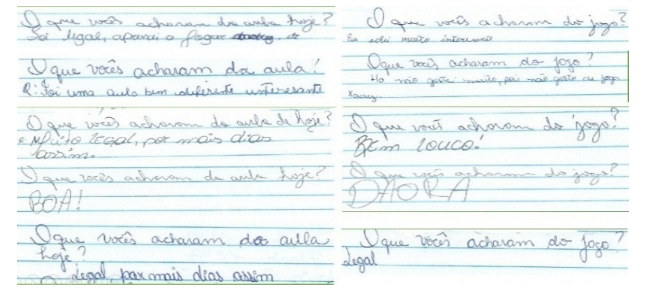 O que vocês acharam da aula hoje?
Foi legal, aprendi a jogar
O que vocês acharam da aula!
R: Foi uma aula bem diferente interesante
O que vocês acharam da aula de hoje?
R Muito legal, por mais dias
assim.
O que vocês acharam da aula hoje?
BOA!
O que vocês acharam da aula
hoje?
Legal, por mais dias assim
O que vocês acharam do jogo?
Eu achei muito
O que vocês acharam do jogo?
não gostei muito, pois não gosto
O que você acharam do jogo?
Bem louco!
O que vocês acharam do jogo?
DAORA
O que vocês acharam do jogo?
Legal